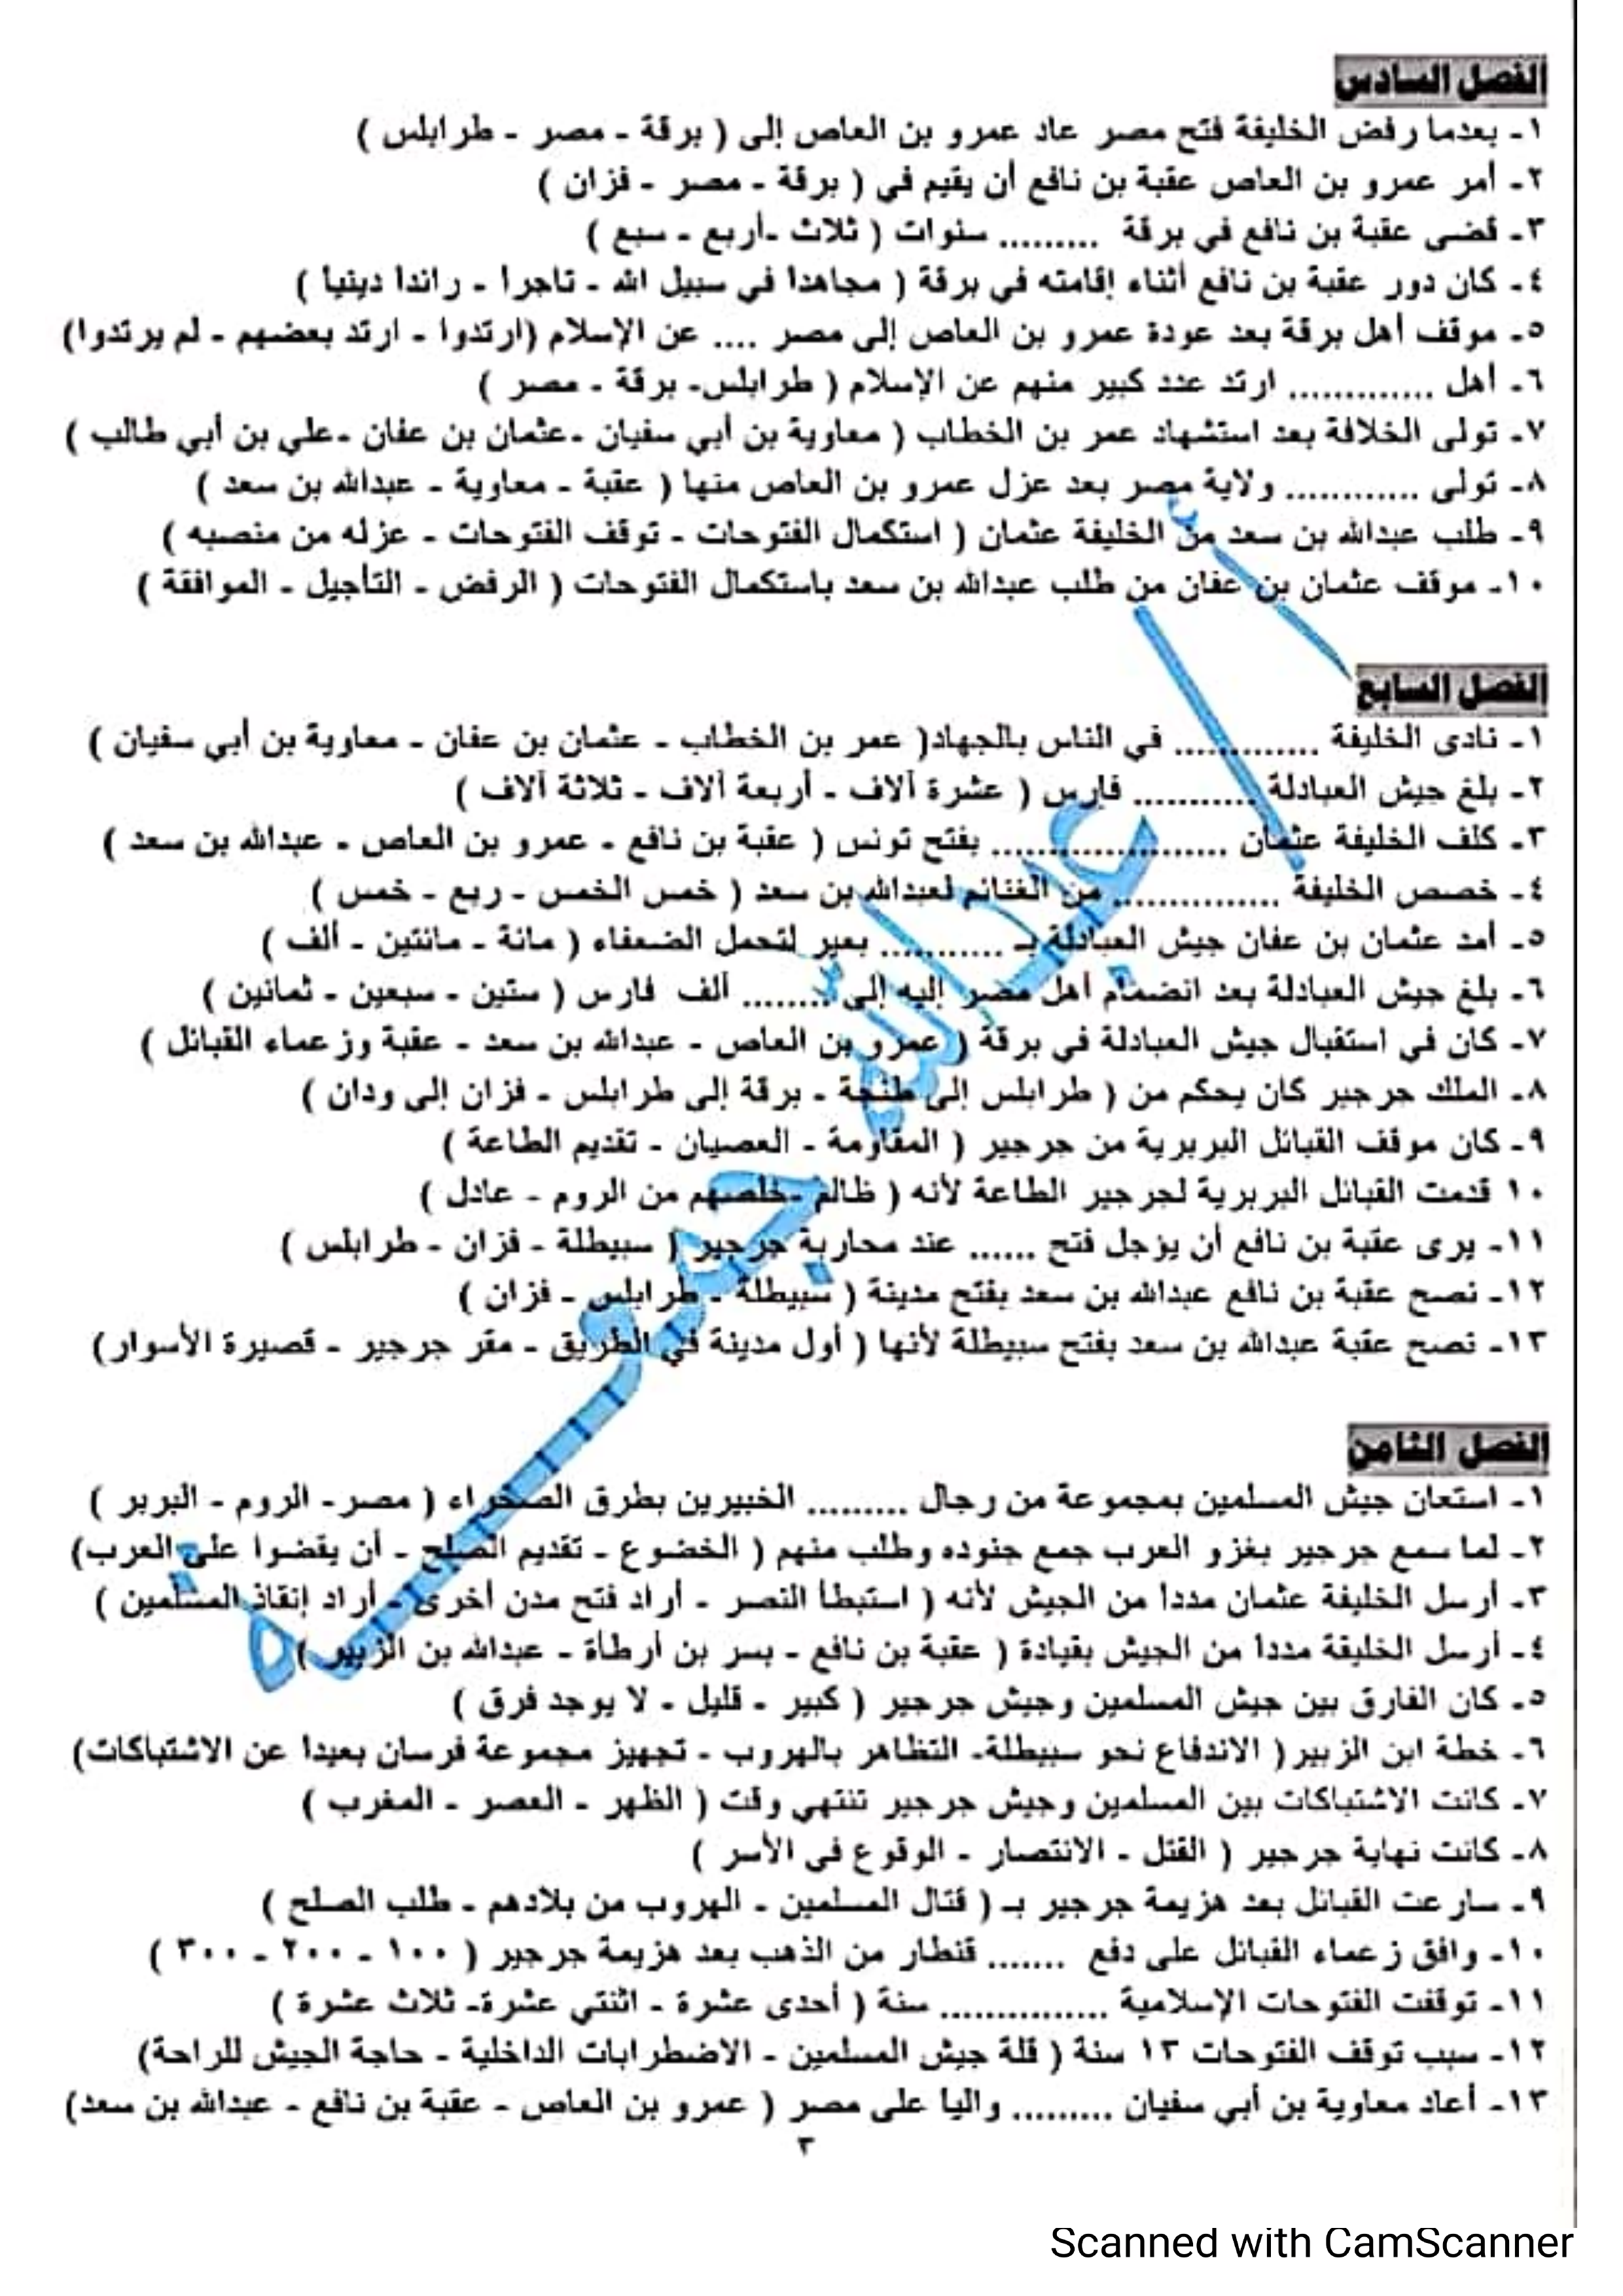 الفصل السادس
١- بعدما رفض الخليفة فتح مصر عاد عمرو بن العاص إلى ( برقة - مصر - طرابلس )
٢- أمر عمرو بن العاص عقبة بن نافع أن يقيم في ( برقة - مصر - فزان )
٣- قضى عقبة بن نافع في برقة ......... سنوات ( ثلاث -أربع - سبع )
٤- كان دور عقبة بن نافع أثناء إقامته في برقة ( مجاهدا في سبيل الله - تاجرا - رائدا دينيا )
٥- موقف أهل برقة بعد عودة عمرو بن العاص إلى مصر .... عن الإسلام (ارتدوا - ارتد بعضهم - لم يرتدوا)
٦- أهل ............. ارتد عدد كبير منهم عن الإسلام ( طرابلس- برقة - مصر )
٧- تولى الخلافة بعد استشهاد عمر بن الخطاب ( معاوية بن أبي سفيان -عثمان بن عفان -علي بن أبي طالب )
٨- تولى ............ ولاية مصر بعد عزل عمرو بن العاص منها ( عقبة - معاوية - عبدالله بن سعد )
٩- طلب عبدالله بن سعد من الخليفة عثمان ( استكمال الفتوحات - توقف الفتوحات - عزله من منصبه )
١٠- موقف عثمان بن عفان من طلب عبدالله بن سعد باستكمال الفتوحات ( الرفض - التأجيل - الموافقة )
الفصل السابع
١- نادى الخليفة ............. في الناس بالجهاد( عمر بن الخطاب - عثمان بن عفان - معاوية بن أبي سفيان )
٢- بلغ جيش العبادلة ........... فارس ( عشرة آلاف - أربعة آلاف - ثلاثة آلاف )
٣- كلف الخليفة عثمان ..................... بفتح تونس ( عقبة بن نافع - عمرو بن العاص - عبدالله بن سعد )
٤- خصص الخليفة ............... من الغنائم لعبدالله بن سعد ( خمس الخمس - ربع - خمس )
٥- أمد عثمان بن عفان جيش العبادلة بـ ........... بعير لتحمل الضعفاء ( مائة - مائتين - ألف )
٦- بلغ جيش العبادلة بعد انضمام أهل مصر إليه إلى ........ ألف فارس ( ستين - سبعين - ثمانين )
٧- كان في استقبال جيش العبادلة في برقة ( عمرو بن العاص - عبدالله بن سعد - عقبة وزعماء القبائل )
٨- الملك جرجير كان يحكم من ( طرابلس إلى طنجة - برقة إلى طرابلس - فزان إلى ودان )
٩- كان موقف القبائل البربرية من جرجير ( المقاومة - العصيان - تقديم الطاعة )
١٠ قدمت القبائل البربرية لجرجير الطاعة لأنه ( ظالم -خلصهم من الروم - عادل )
١١- يرى عقبة بن نافع أن يؤجل فتح ...... عند محاربة جرجير ( سبيطلة - فزان - طرابلس )
١٢- نصح عقبة بن نافع عبدالله بن سعد بفتح مدينة ( سبيطلة - طرابلس - فزان )
١٣- نصح عقبة عبدالله بن سعد بفتح سبيطلة لأنها ( أول مدينة في الطريق - مقر جرجير - قصيرة الأسوار)
الفصل الثامن
١- استعان جيش المسلمين بمجموعة من رجال ......... الخبيرين بطرق الصحراء ( مصر- الروم - البربر )
٢- لما سمع جرجير بغزو العرب جمع جنوده وطلب منهم ( الخضوع - تقديم الصلح - أن يقضوا على العرب)
٣- أرسل الخليفة عثمان مددا من الجيش لأنه ( استبطأ النصر - أراد فتح مدن أخرى - أراد إنقاذ المسلمين )
٤- أرسل الخليفة مددا من الجيش بقيادة ( عقبة بن نافع - بسر بن أرطأة - عبدالله بن الزبير )
٥- كان الفارق بين جيش المسلمين وجيش جرجير ( كبير - قليل - لا يوجد فرق )
٦- خطة ابن الزبير( الاندفاع نحو سبيطلة- التظاهر بالهروب - تجهيز مجموعة فرسان بعيدا عن الاشتباكات)
٧- كانت الاشتباكات بين المسلمين وجيش جرجير تنتهي وقت ( الظهر - العصر - المغرب )
٨- كانت نهاية جرجير ( القتل - الانتصار - الوقوع في الأسر )
٩- سارعت القبائل بعد هزيمة جرجير بـ ( قتال المسلمين - الهروب من بلادهم - طلب الصلح )
١٠- وافق زعماء القبائل على دفع ....... قنطار من الذهب بعد هزيمة جرجير ( ١٠٠ - ٢٠٠ - ٣٠٠ )
١١- توقفت الفتوحات الإسلامية ............... سنة ( أحدى عشرة - اثنتي عشرة- ثلاث عشرة )
١٢- سبب توقف الفتوحات ١٣ سنة ( قلة جيش المسلمين - الاضطرابات الداخلية - حاجة الجيش للراحة)
١٣- أعاد معاوية بن أبي سفيان ......... واليا على مصر ( عمرو بن العاص - عقبة بن نافع - عبدالله بن سعد)
٣
أ / عبدالله جمعة
Scanned with CamScanner